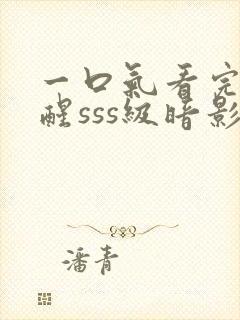 一口气看完
醒sss级暗影
潘青